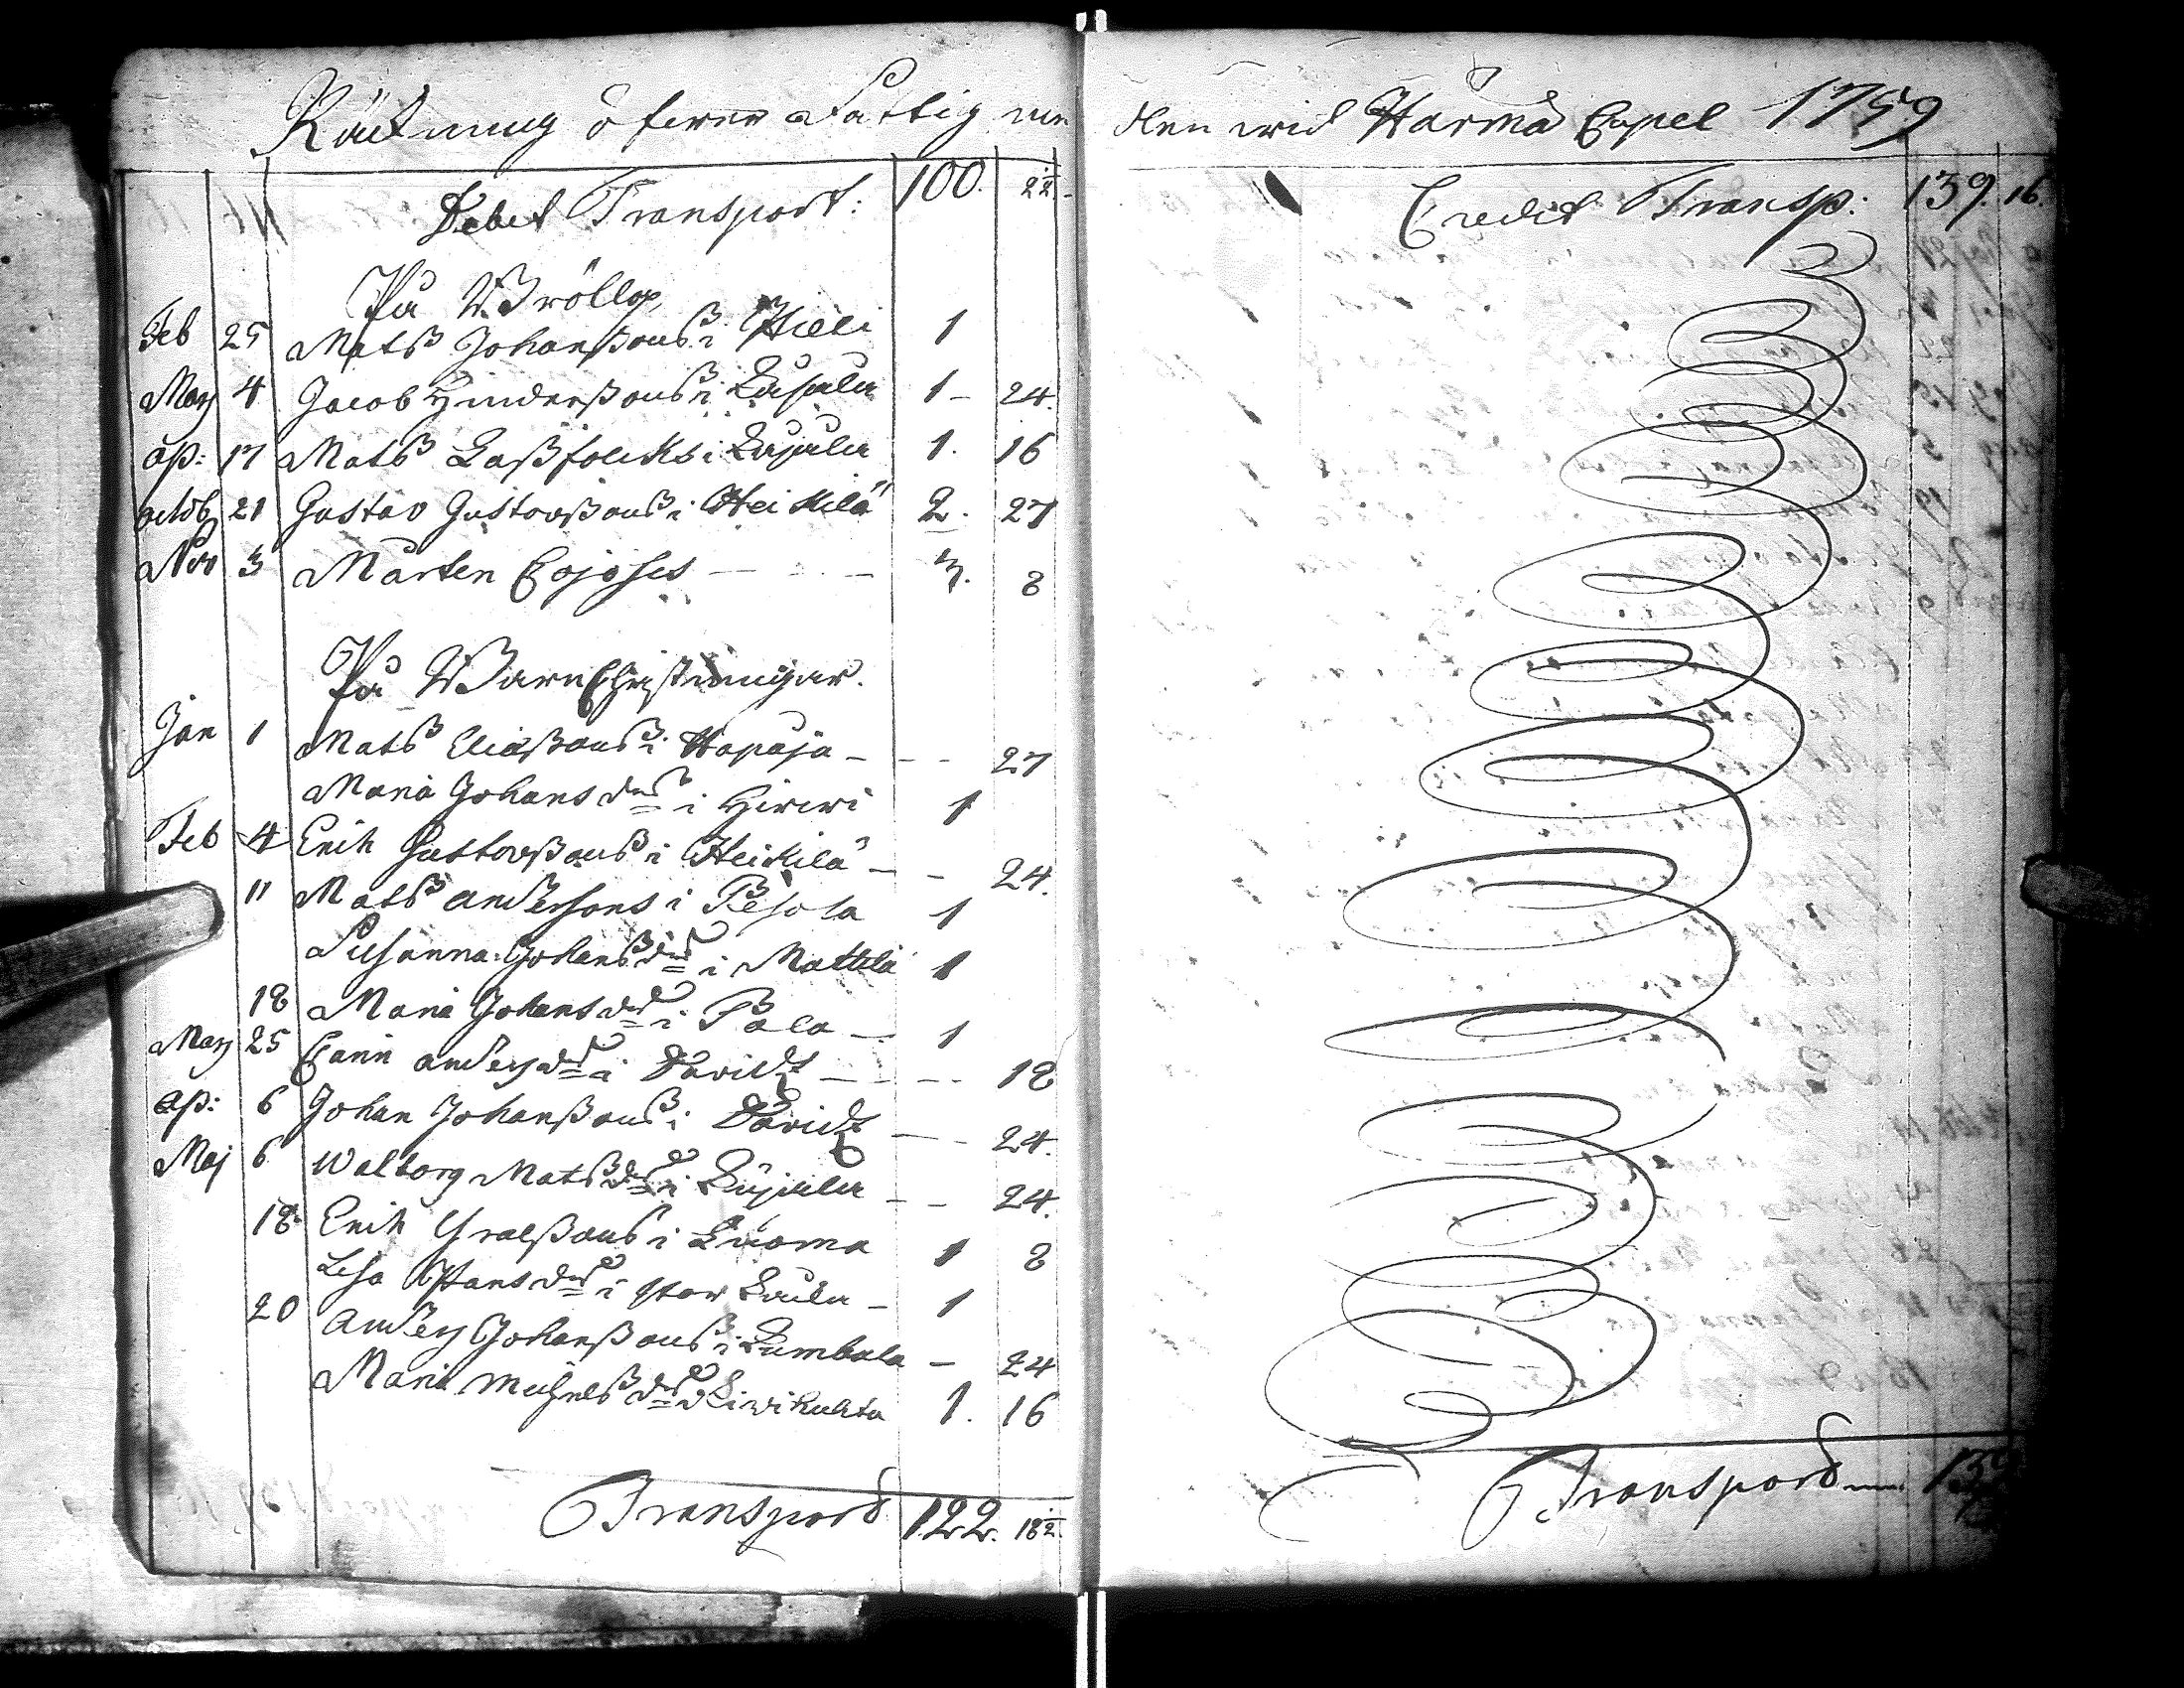 Räkning öfwer Fattig me
Debet Transport: 100. 22 1/2
På Bröllop
Feb 25 Matß Johanßons i Killi 1
Marz 4 Jacob Hinderßons i Luhala 1 - 24.
ap: 17 Matß Laßfolcks i Lujala 1. 16
octob 21 Gustav Gustavßons i Heikilä 2. 27
Nov 3 Mårten Cojohes - - - 3. 8
På BarnChristningar.
Jan 1 Matß Eliaßons i Hapoja - - - 27
Maria Johansdr i Hirwi 1
Feb 4 Erik Gustavßons i Heikilä - - 24.
11 Matß andersons i Pesola 1
Susanna Johanßdr i Mattila 1
18 Maria Johansdr i Pala - 1
Marz 25 Carin andersdr i Davidz - - - 18
ap: 6 Johan Johanßons i Davidz - - 24.
Maj 6 Walborg Matßdr i Lujala - - 24.
18 Erik Graelßons i Luoma 1 8
Lisa Hansdr i Stor Laula - 1
20 anders Johanßons i Kumbala - 24
Maria Michelßdr i Kiwihuhta 1. 16
Transport 122. 18 1/2
dlen wid Härmä Capel 1759
Credit Transp: 139. 16.
Transport 139